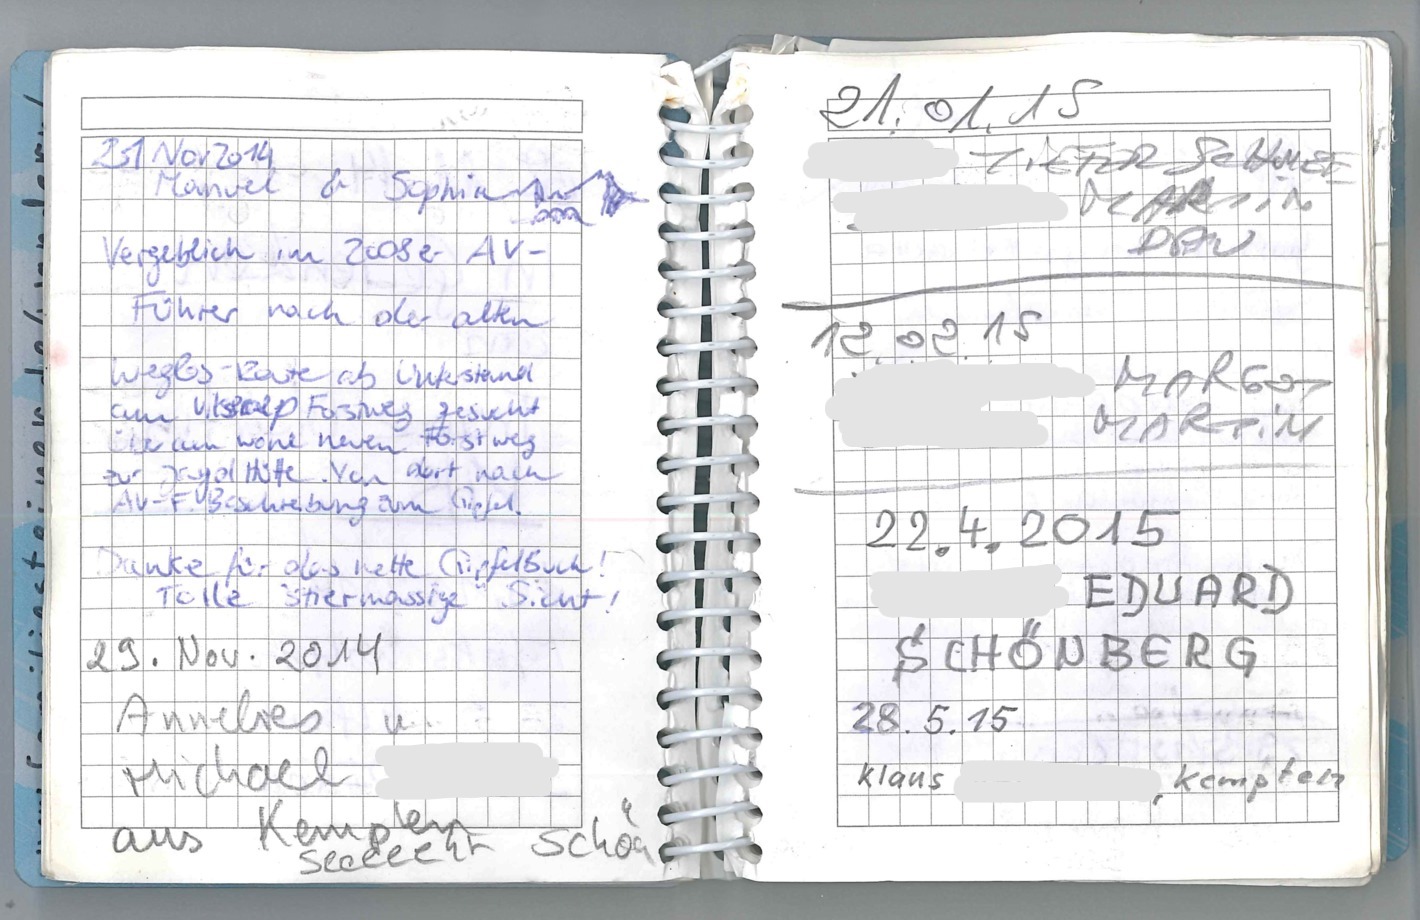 21 Nov 2014
Manuel & Sophia
Vergeblich im 2008er AV-
Führer nach der alten
Weglos-Route ab Unterstand
am Forstweg gesucht
neuen Forstweg
zur Jagdhütte. Von dort nach
AV-F. Beschreibung zum Gipfel.
Danke für das nette GipfelBuch!
Tolle "stiermässige" Sicht!
29. Nov. 2014
Annelies u.
Michael
aus Kempten
seeeehr schön
21.01.15
MARTIN
DAV
12.02.15
MARGOT
MARTIN
22.4.2015
EDUARD
SCHÖNBERG
28.5.15
Klaus , Kempten